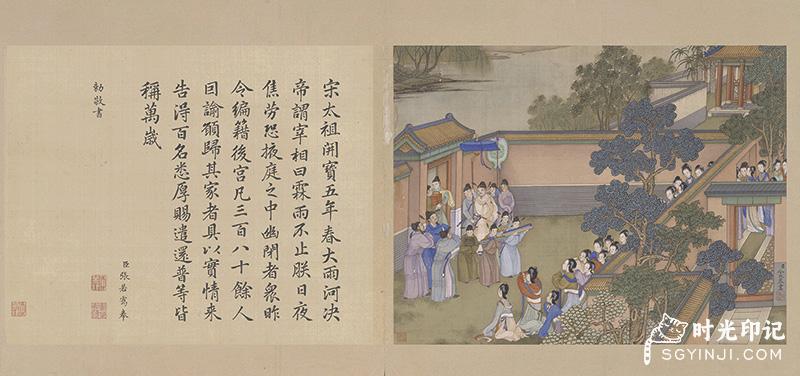 宋太祖開寶五年春大雨河决
帝謂宰相曰霖雨不止朕日夜
焦勞恐掖庭之中幽閉者衆昨
令編籍後宮凡三百八十餘人
因諭願歸其家者具以實情來
告得百名悉厚賜遣還普等皆
稱萬歲
臣張若靄奉
勅敬書
时光印记
SGYINJI.COM